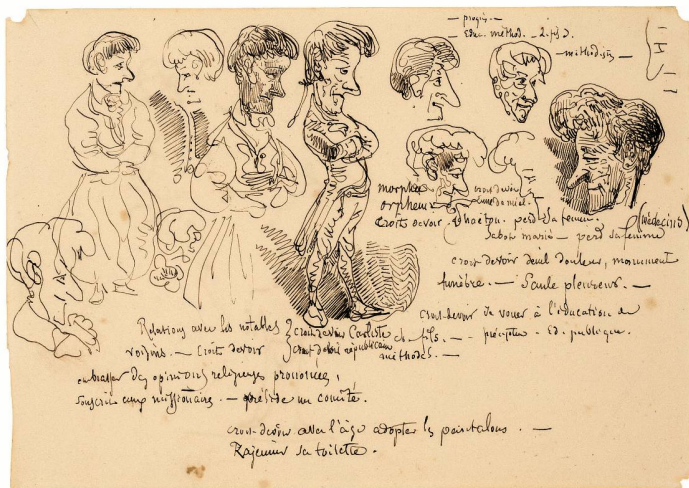 — progrès. —
— Educ. méthod. — 2. fils
— méthodes —
morphée
orpheus
croit devoir
croit devoir
phaëton. perd sa femme. (médecins)
Jabot marié — perd sa femme
croit devoir deuil douleur, monument
funèbre. — Saule pleureur. —
croit devoir se vouer à l'éducation de
ses fils. — — précepteur - Ed. publique.
méthodes. —
Relations avec les notables { croit devoir Carliste
voisins. — Croit devoir { croit devoir républicain
embrasser des opinions religieuses prononcées,
souscrit aux missionnaires. — préside un comité.
croit devoir avec l'âge adopter les pantalons. —
Rajeunir sa toilette.